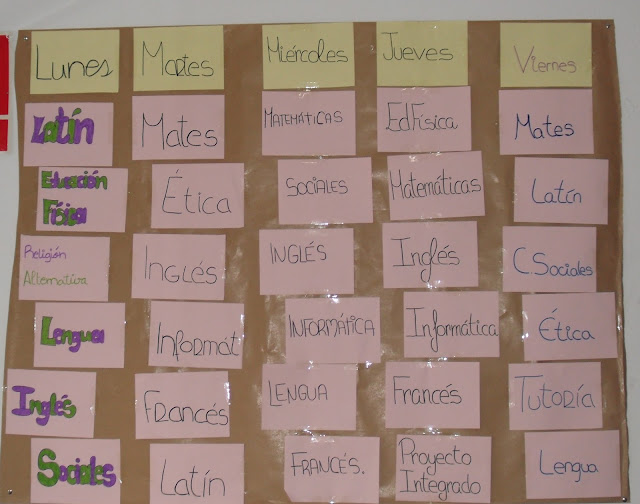 Lunes Martes Miércoles Jueves Viernes
Latín Mates MATEMÁTICAS EdFísica Mates
Educación
Física Ética SOCIALES Matemáticas Latín
Religión
Alternativa INGLÉS INGLÉS Inglés C.Sociales
Lengua Informát INFORMÁTICA Informática Ética
Inglés FRANCÉS LENGUA Francés TUTORÍA
Sociales Latín FRANCÉS. Proyecto
Integrado Lengua